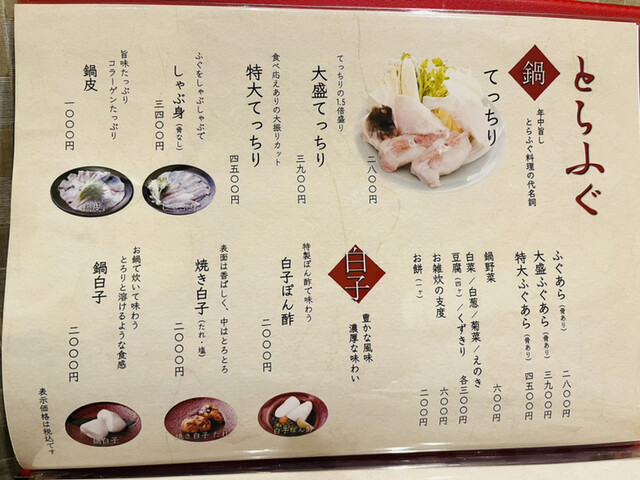 とらふぐ
鍋
年中旨し
とらふぐ料理の代名詞
てっちり
二八〇〇円
てっちりの1.5倍盛り
大盛てっちり
三九〇〇円
食べ応えありの大振りカット
特大てっちり
四五〇〇円
ふぐをしゃぶしゃぶで
しゃぶ身(骨なし)
三四〇〇円
旨味たっぷり
コラーゲンたっぷり
鍋皮
一〇〇〇円
鍋皮
ふぐあら(骨あり) 二八〇〇円
大盛ふぐあら(骨あり) 三九〇〇円
特大ふぐあら(骨あり) 四五〇〇円
鍋野菜 六〇〇円
白菜/白葱/菊菜/えのき
豆腐(四ヶ)/くずきり 各三〇〇円
お雑炊の支度 六〇〇円
お餅(一ヶ) 二〇〇円
白子
豊かな風味
濃厚な味わい
特製ぽん酢で味わう
白子ぽん酢
二〇〇〇円
白子ぽん酢
表面は香ばしく、中はとろとろ
焼き白子(たれ・塩)
二〇〇〇円
焼き白子 たれ
お鍋で炊いて味わう
とろりと溶けるような食感
鍋白子
二〇〇〇円
鍋白子
表示価格は税込です